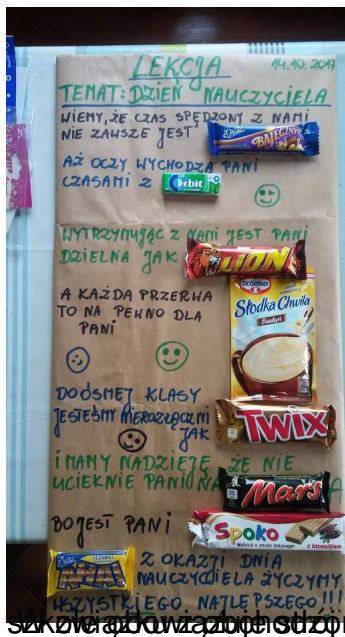 LEKCJA 14.10.2017
TEMAT: DZIEŃ NAUCZYCIELA
WIEMY, ŻE CZAS SPĘDZONY Z NAMI
NIE ZAWSZE JEST BAJECZNY
AŻ OCZY WYCHODZĄ PANI
CZASAMI Z Orbit
WYTRZYMUJĄC Z NAMI JEST PANI
DZIELNA JAK LION
Dr. Oetker
A KAŻDA PRZERWA
TO NA PEWNO DLA
PANI
Słodka Chwila
Budyń
DO ÓSMEJ KLASY
JESTEŚMY NIEROZŁĄCZNI
JAK TWIX
I MAMY NADZIEJĘ, ŻE NIE
UCIEKNIE PANI NA
Mars
BO JEST PANI Spoko
z błonnikiem
SEZAMKI
Z OKAZJI DNIA
NAUCZYCIELA ŻYCZYMY
WSZYSTKIEGO NAJLEPSZEGO!!!